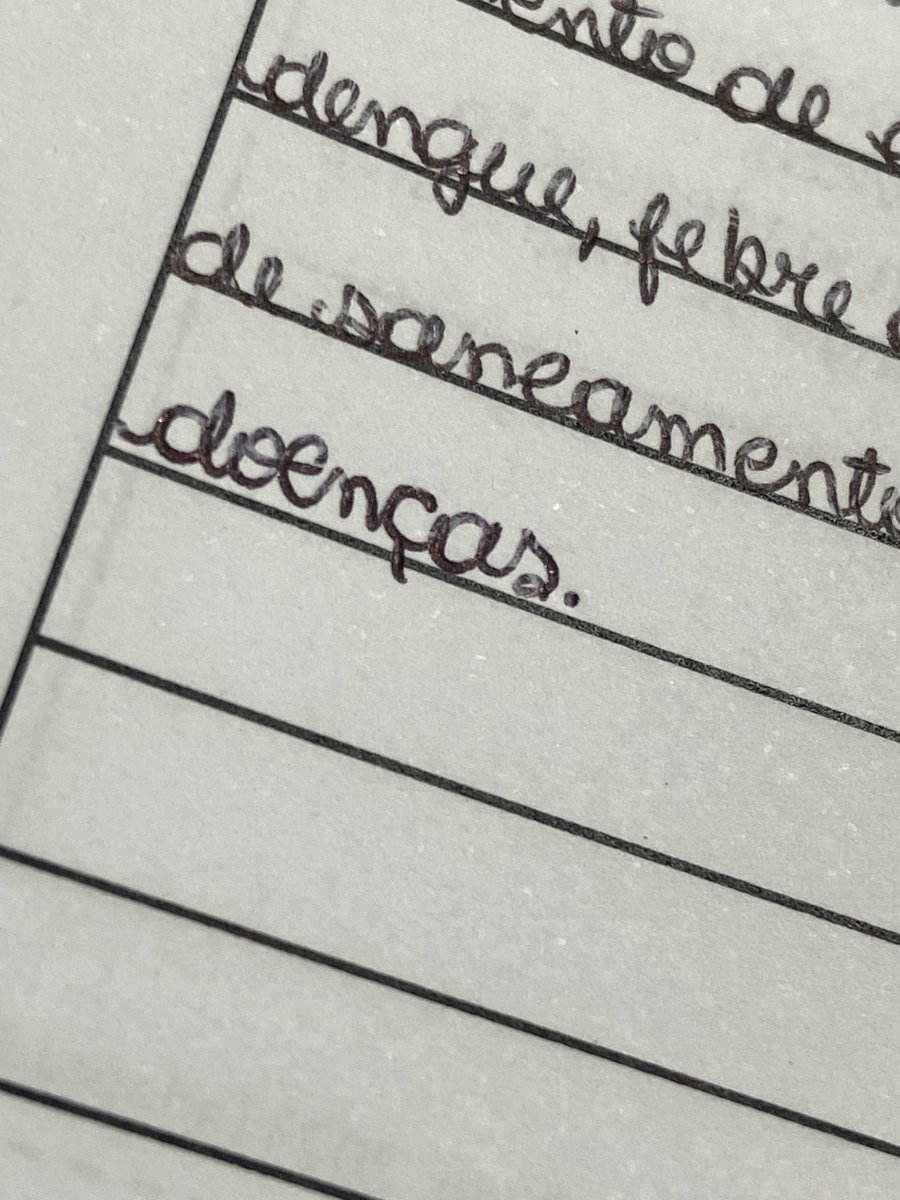 ento de
dengue, febre
de saneamento
doenças.